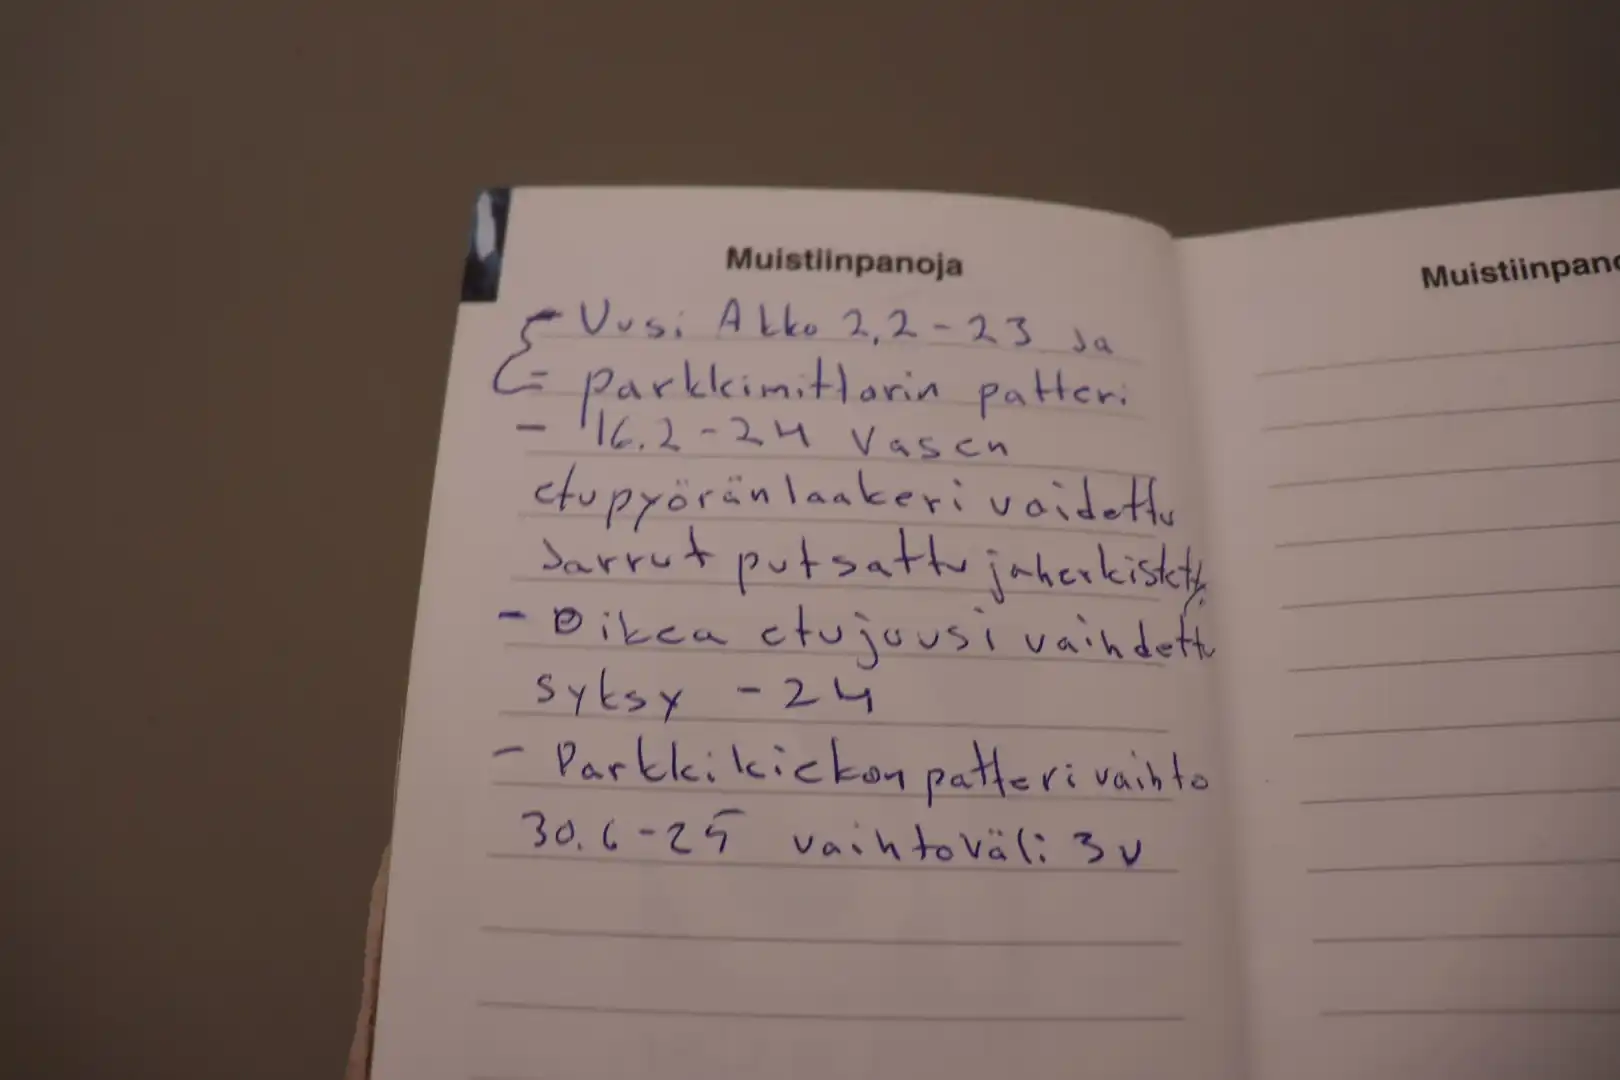 Muistiinpanoja
- Uusi Akko 2,2-23 Ja
= parkkimittarin patteri
- 16.2-24 Vasen
etupyöränlaakeri vaidettu
Jarrut putsattu jaherkistetty
- Oikea etujousi vaihdettu
syksy -24
- Parkkikiekon patteri vaihto
30.6-25 vaihtoväli 3v
Muistiinpano